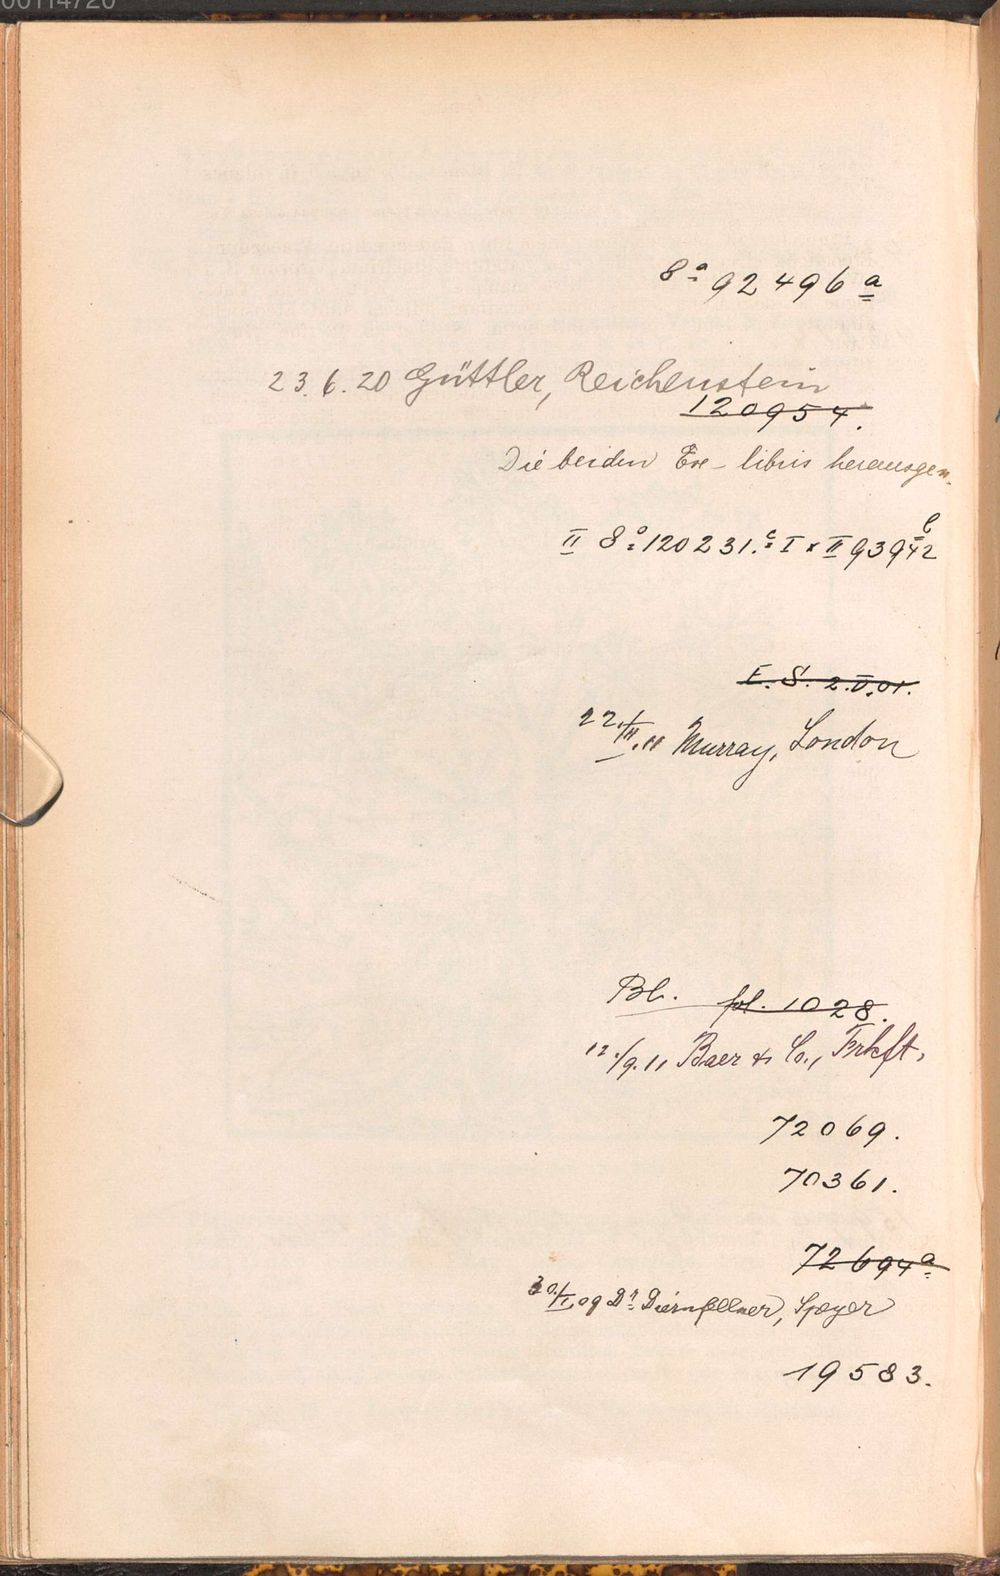 00114720
8° 92496 a
23.6.20 Güttler, Reichenstein
120954.
Die beiden Ex-libris herausgen.
II 8° 120231. c I × II 93942 b
E. S. 2.V.01.
22./III.11 Murray, London
Bl. fol. 1028.
12./9.11 Baer & Co., Frkft.
72069.
70361.
72694 a
30./I.09 Dr Diernfellner, Speyer
19583.